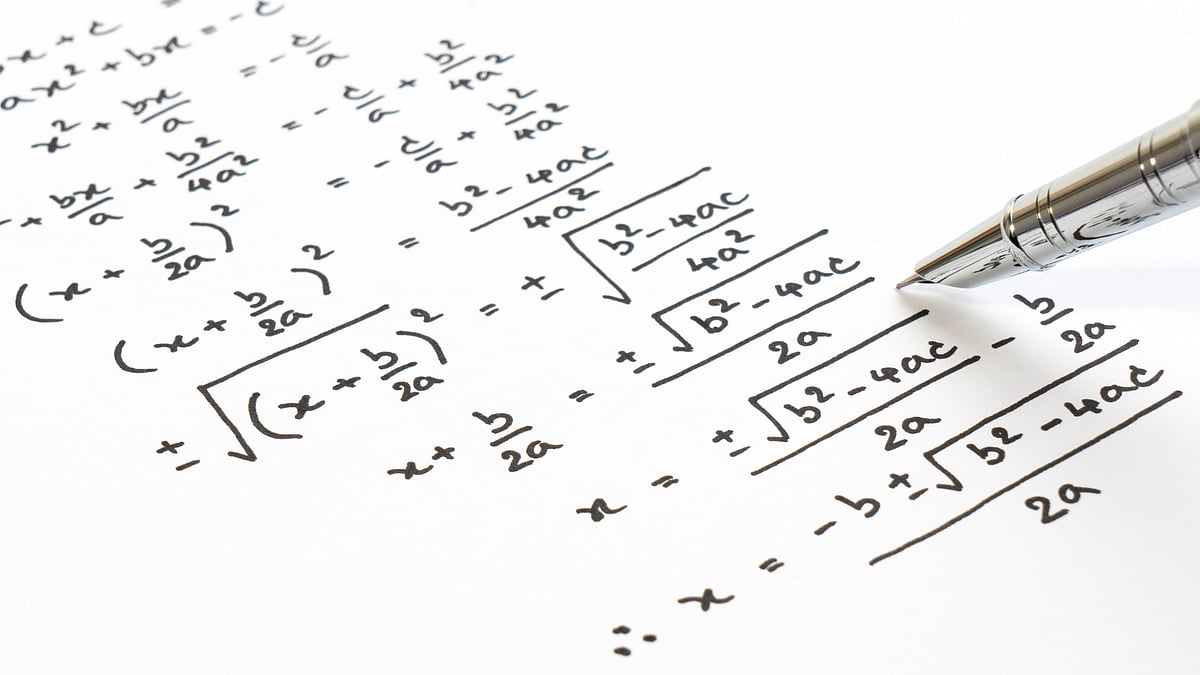 x + c =
ax² + bx = -c
x² + bx/a = -c/a
+ bx/a + b²/4a² = -c/a + b²/4a²
(x + b/2a)² = -c/a + b²/4a²
(x + b/2a)² = (b² - 4ac)/4a²
±√(x + b/2a)² = ±√((b² - 4ac)/4a²)
x + b/2a = ±√(b² - 4ac)/2a
x = ±√(b² - 4ac)/2a - b/2a
∴ x = (-b ± √(b² - 4ac))/2a